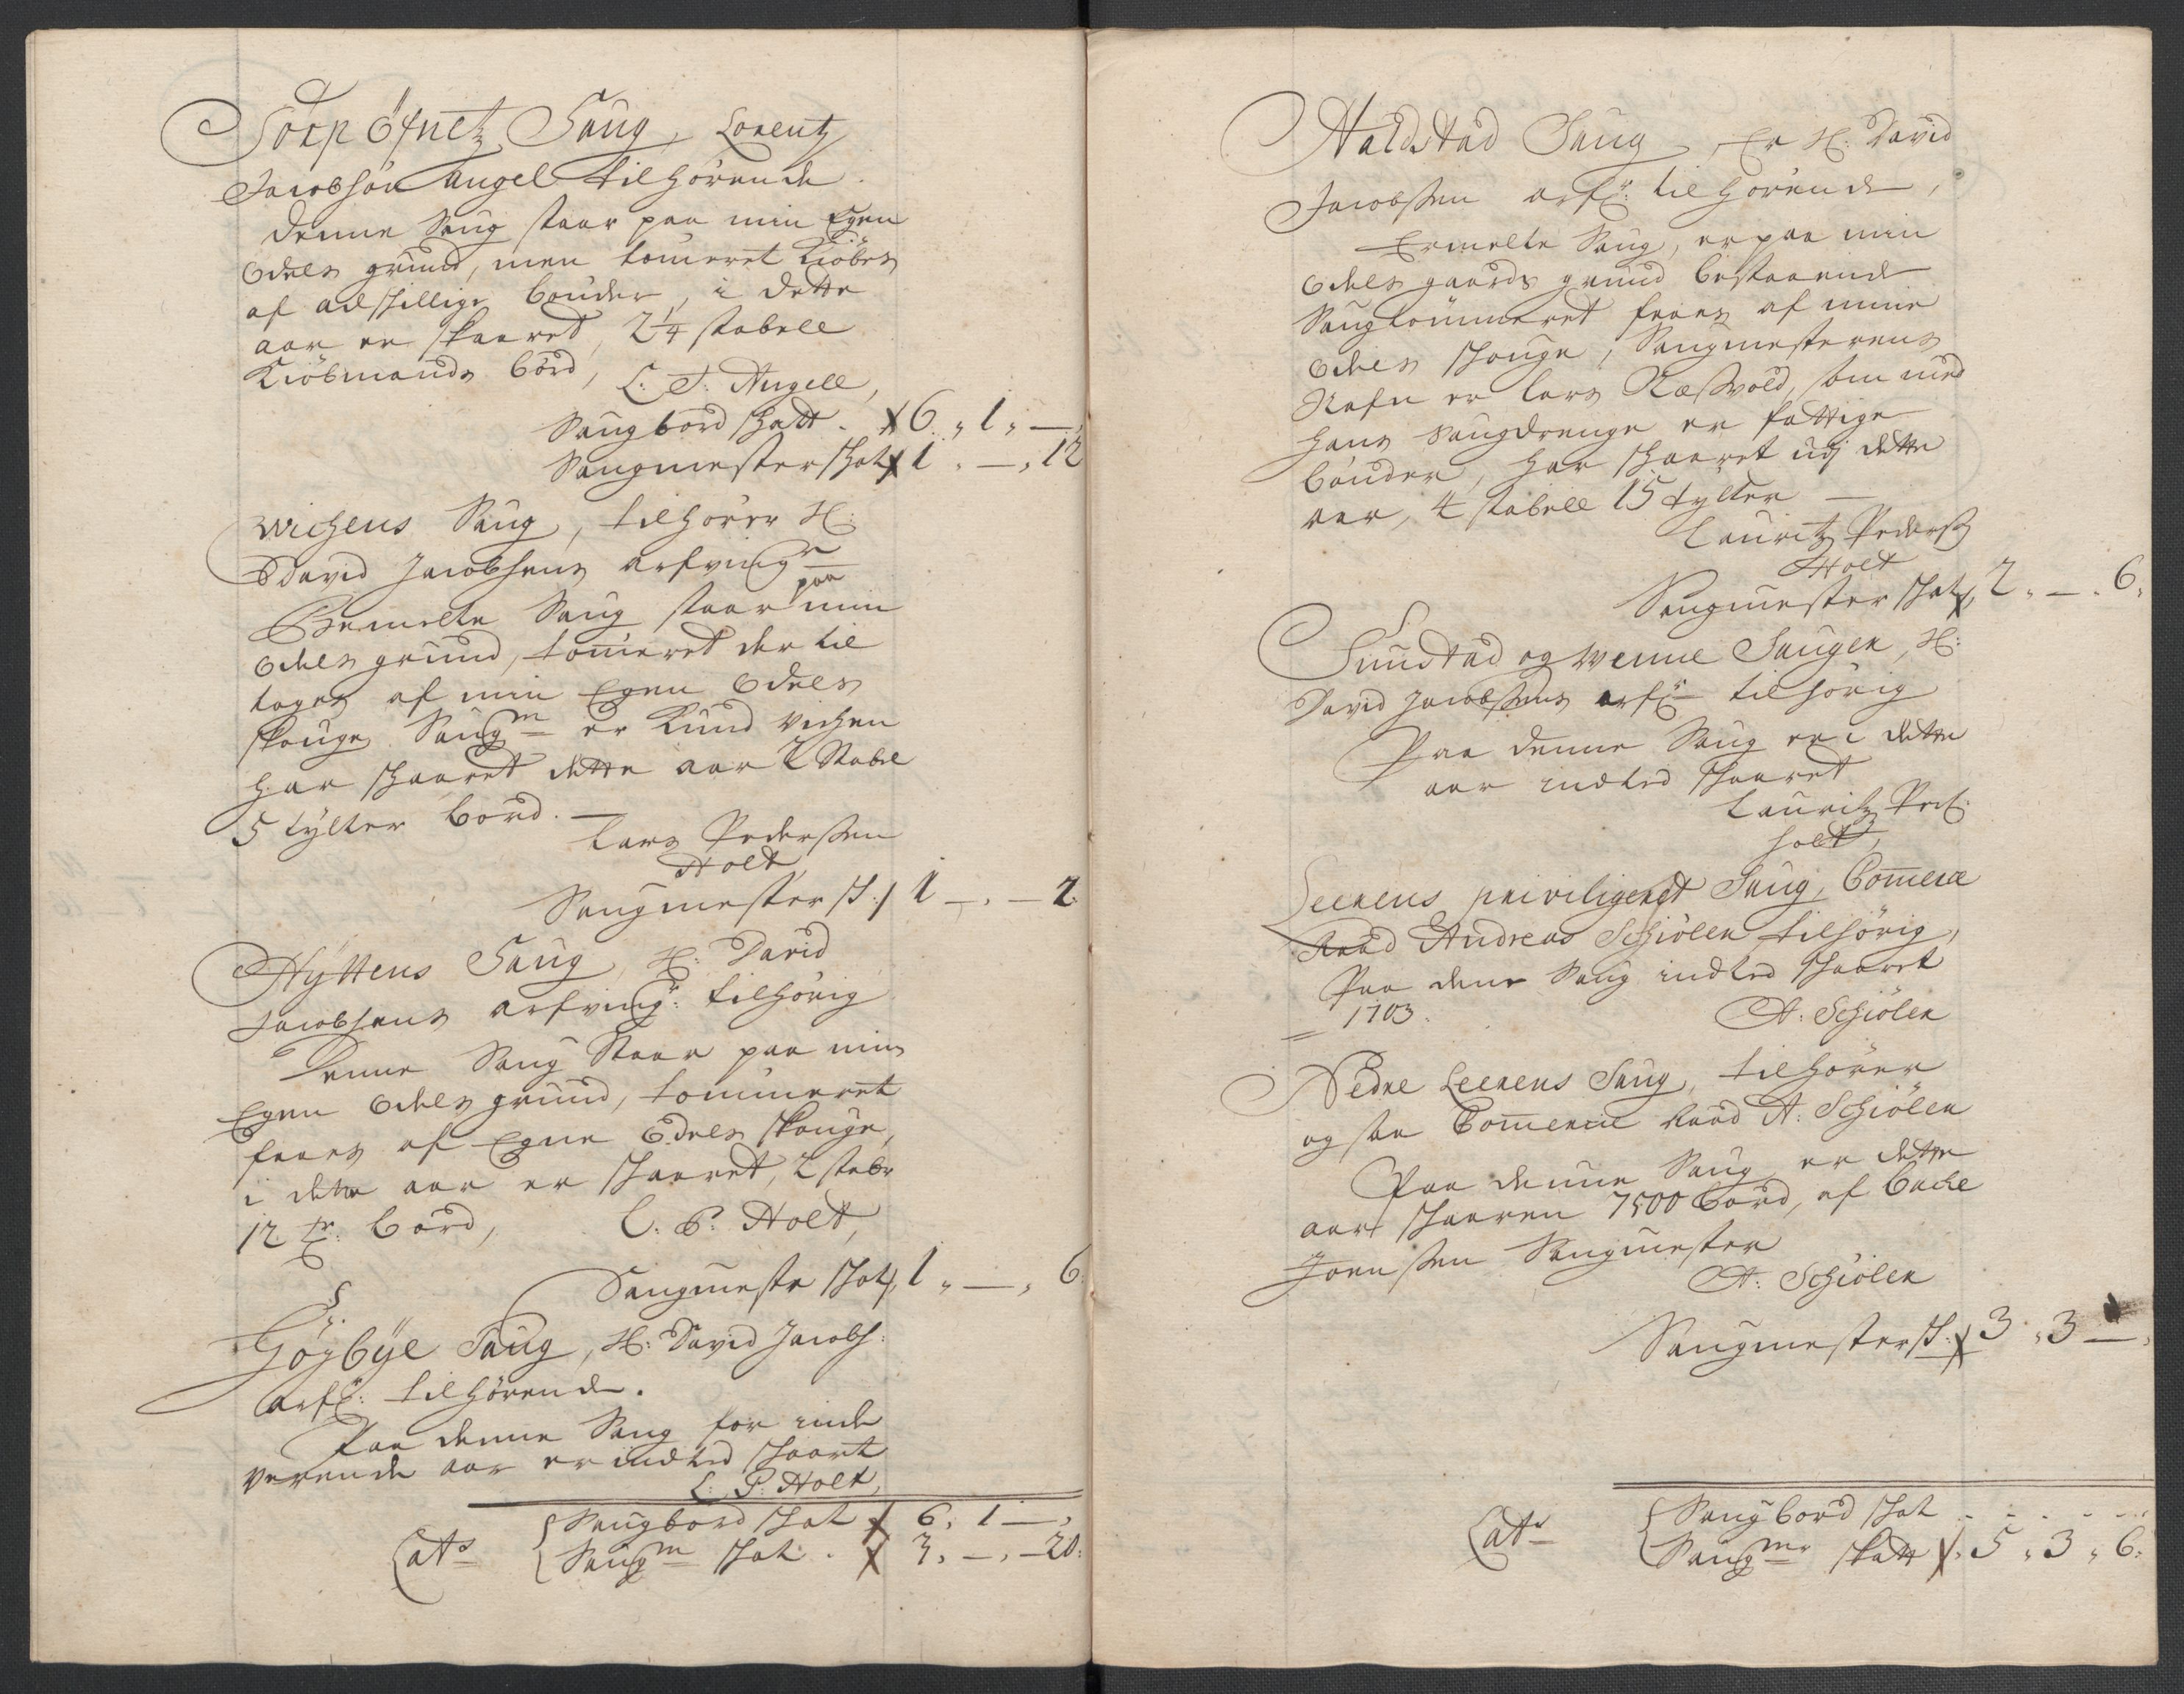 Sörp Öfnetz Saug, Lorentz
Jacobsön Angel tilhörende.
Denne Saug staar paa min Egen
Odels grund, men tömeret Kiöbes
af adskillige bönder, i dette
aar er skaaret, 2¼ stabell
Kiöbmands bord,
L: J: Angell,
Saugbord skatt. 6 " 1 " —
Saugmester skat 1 " — " 12
Wichens Saug, tilhörer H:
David Jacobsens arfving
Bemelte Saug staar paa min
Odels grund, tömeret der til
tages af min Egen Odels
skouge. Saugm er Knud Vichen
har skaaret dette aar 2 Stabel
5 tylter bord. —
Lars Pederssen
Holt
Saugmester sk: 1 — " — 2
Hyttens Saug, H: David
Jacobsens arfving: tilhörig
Denne Saug Staar paa min
Egen Odels grund, tömmeret
faaes af Egne Odels skouge,
i dette aar er skaaret, 2 stabr
12 tr: bord, L: P: Holt,
Saugmester skat, 1 " — " 6
Göybye Saug, H: David Jacobs:
arf: tilhörende.
Paa denne Saug for inde
verende aar er indted skaart
L: P: Holt,
Lats Saugbord skat 6 " 1 —
Saugm skat. 3 " — " 20:
Haldstad Saug, Er H: David
Jacobssen arf: tilhörende,
Ermelte Saug, er paa min
Odels gaards grund bestaaende
Saugtömmeret faaes af mine
Odels skouge, Saugmesterens
Nafn er Lars Næsvold, som med
hans Saugdrenge er fattige
bönder, har skaaret udj dette
aar, 4 stabell 15 tylter —
Lauritz Peders
Holt
Saugmester skat, 2 " — " 6 "
Sundtad og Wenne Saugen, H:
David Jacobssens arf tilhörig
Paa denne Saug er i dette
aar indted skaaret
Lauritz Ped:
Holt,
Leerens priviligeret Saug, Commerce
Raad Andreas Schiöler tilhörig,
Paa dene Saug indted skaaret
1703. A: Schiöler
Nedre Leerens Saug, tilhörer
og saa Commercie Raad A: Schiöler
Paa denne Saug er dette
aar skaaren 7500 bord, af Bache
Joenssen Saugmester
A: Schiöler
Saugmester sk: 3 " 3 —
Lats Saugbord skat - - - - -
Saugmr skatt 5 " 3 " 6: